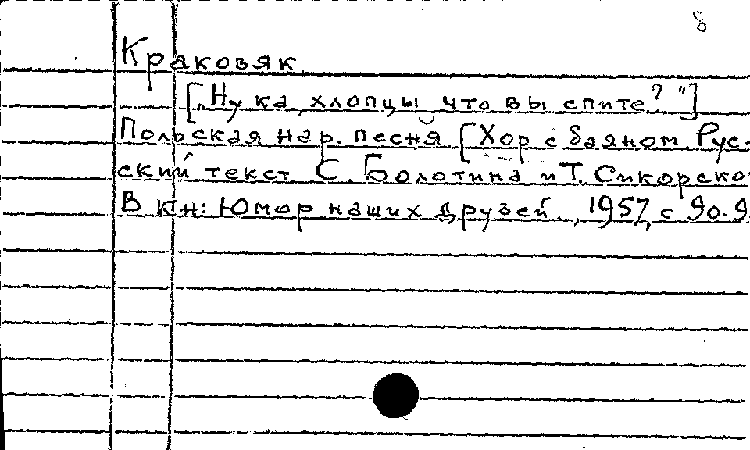 8
Краковяк
["Ну ка, хлопцы что вы спите?"]
Польская нар. песня [Хор с баяном Рус-
ский текст С. Болотина и Т. Сикорско
В кн: Юмор наших друзей, 1957, с 90-9